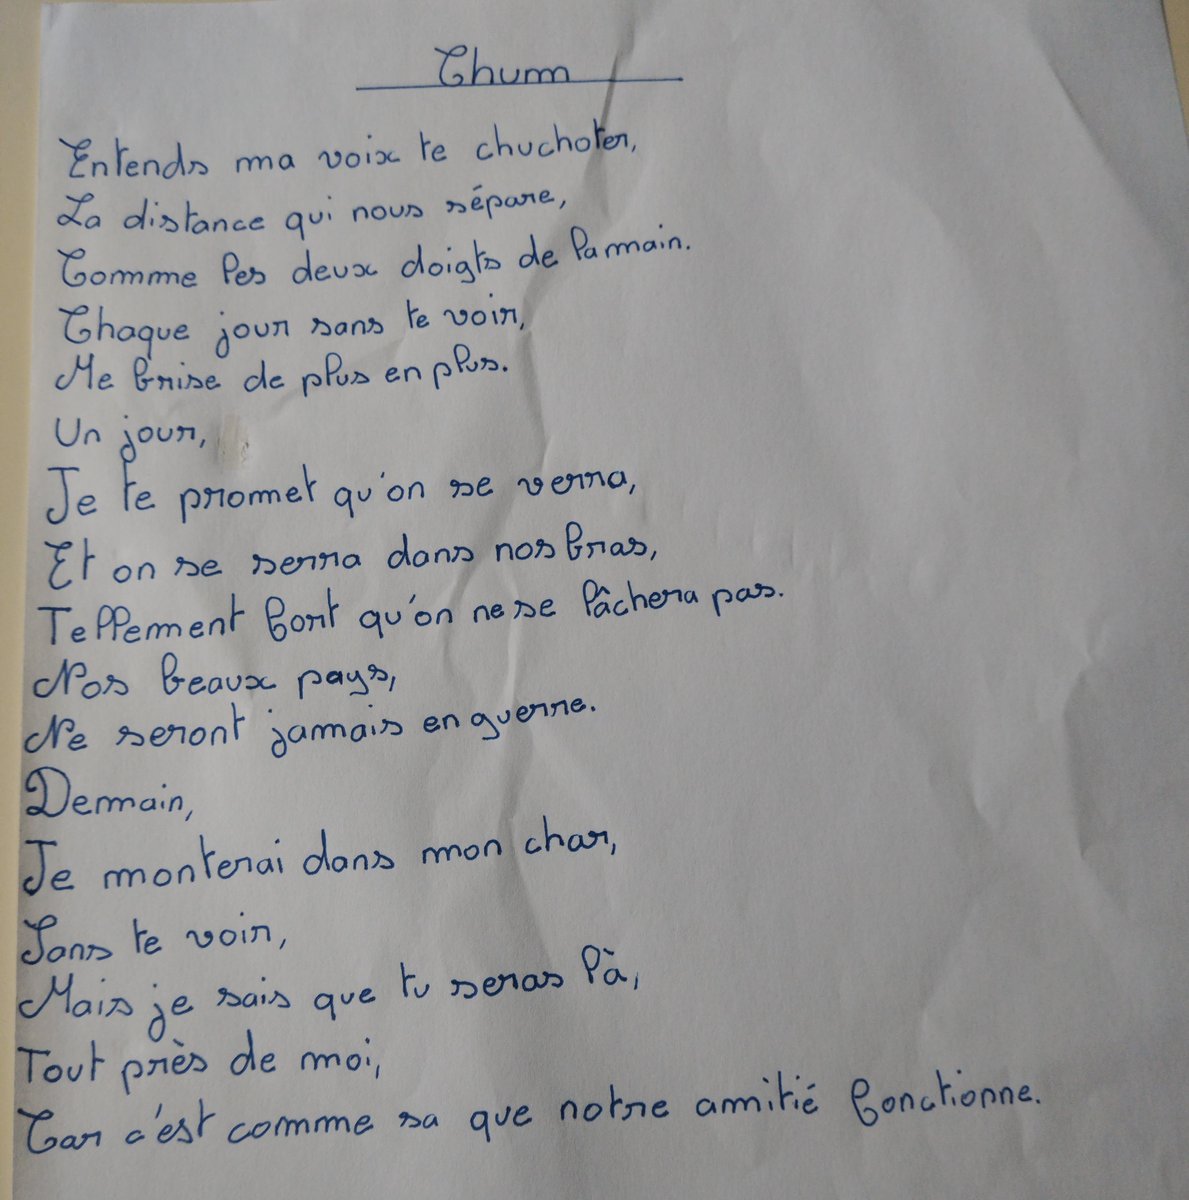 Chum
Entends ma voix te chuchoter,
La distance qui nous sépare,
Comme les deux doigts de la main.
Chaque jour sans te voir,
Me brise de plus en plus.
Un jour,
Je te promet qu'on se verra,
Et on se serra dans nos bras,
Tellement fort qu'on ne se lâchera pas.
Nos beaux pays,
Ne seront jamais en guerre.
Demain,
Je monterai dans mon char,
Sans te voir,
Mais je sais que tu seras là,
Tout près de moi,
Car c'est comme sa que notre amitié fonctionne.